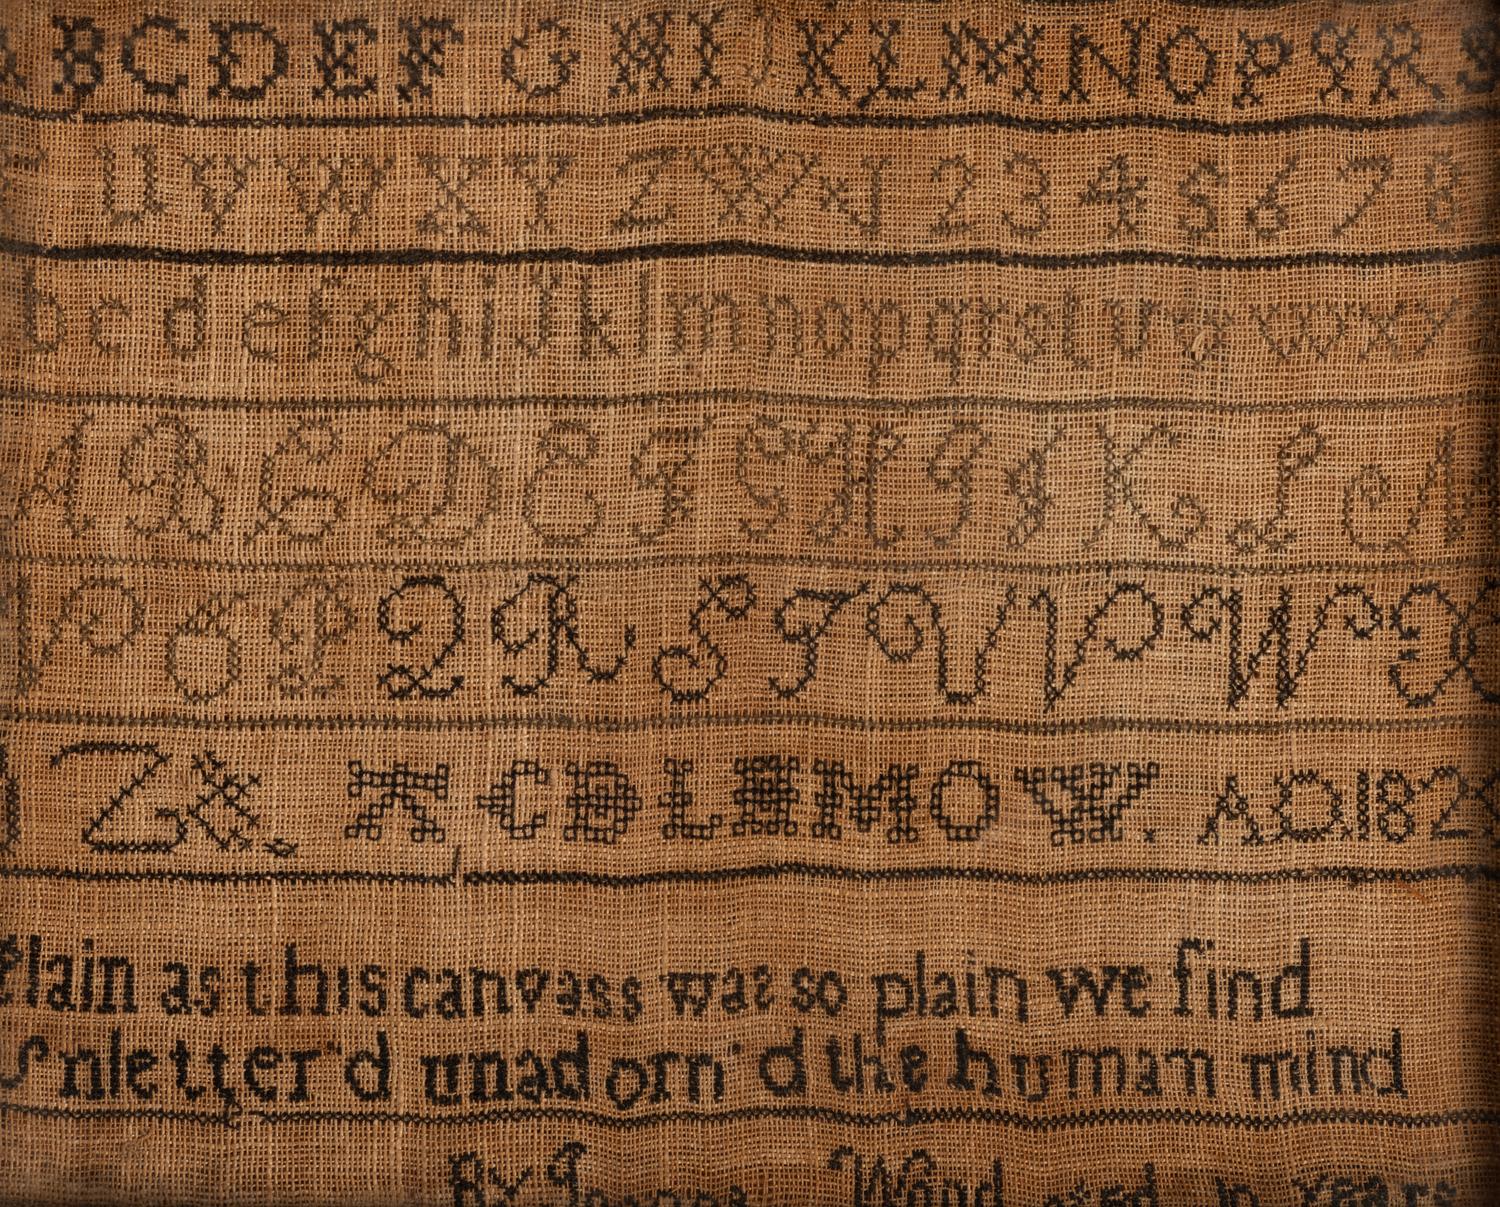 A B C D E F G H I J K L M N O P Q R S
T U V W X Y Z W 1 2 3 4 5 6 7 8
b c d e f g h i j k l m n o p q r s t u v w x y
A B C D E F G H I J K L M
N O P Q R S T U V W X
Z & A C D L H M O W . A D 182
Plain as this canvass was so plain we find
Unletter'd unadorn'd the human mind
By Wood aged 10 years